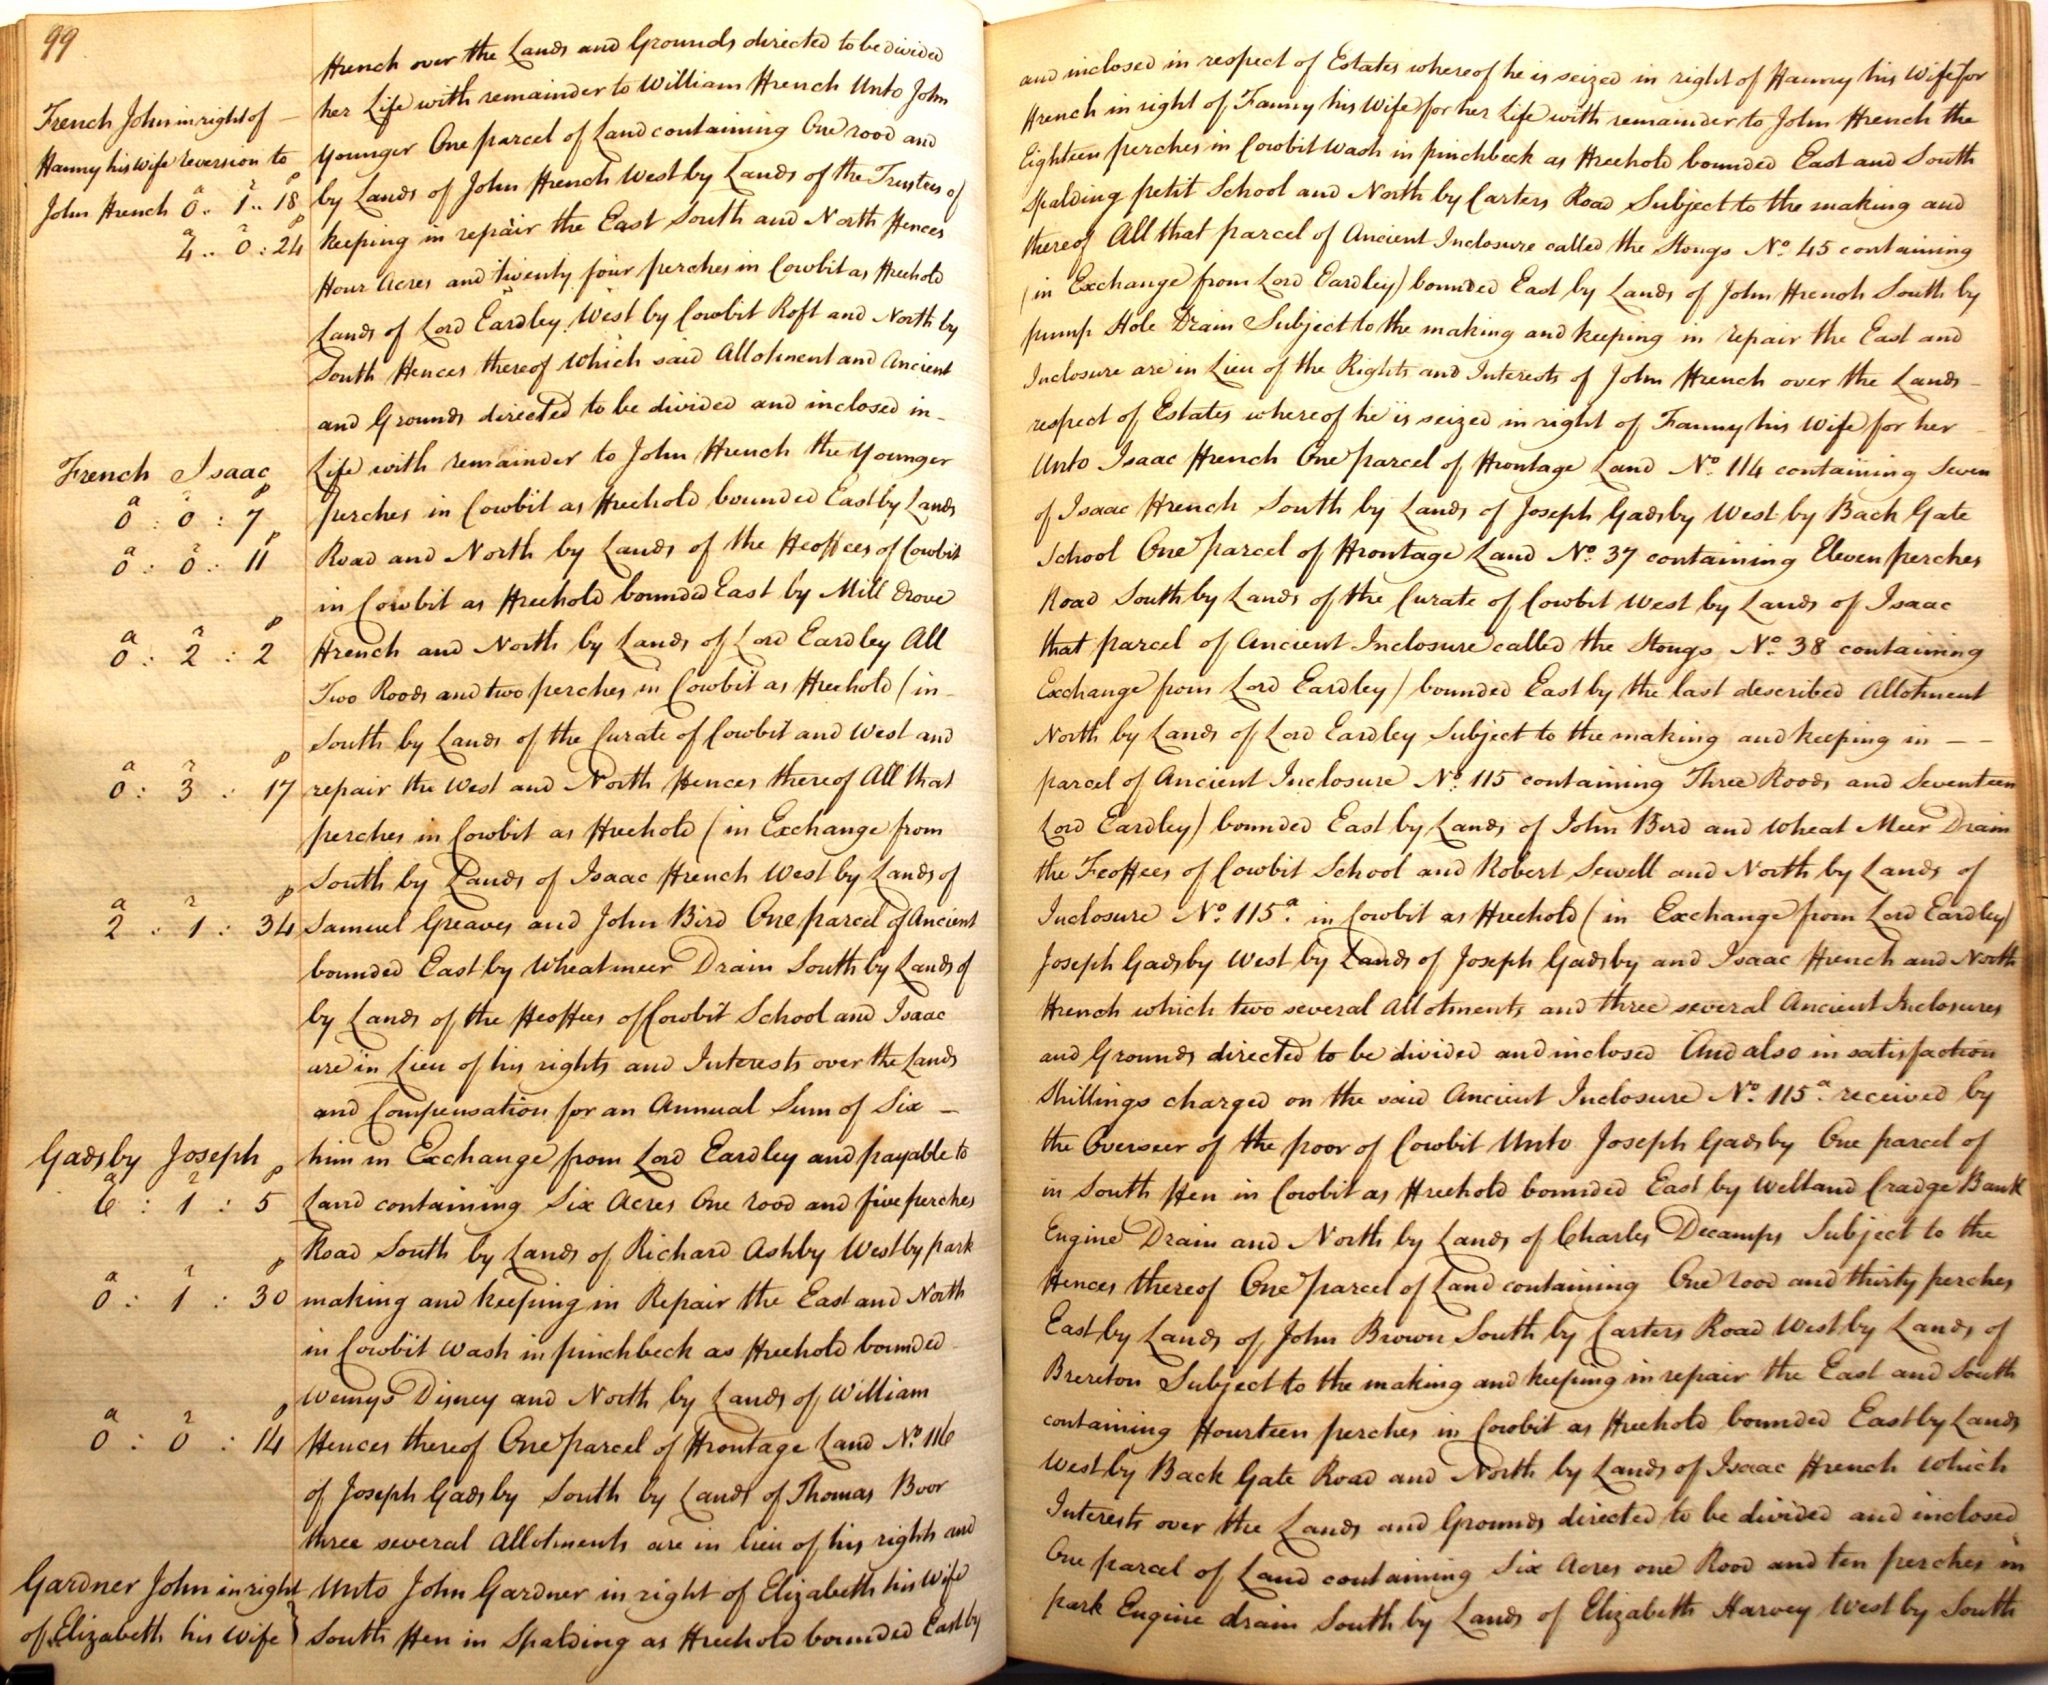 99
French over the Lands and Grounds directed to be divided
and inclosed in respect of Estates whereof he is seized in right of Fanny his Wife for
French John in right of —
her Life with remainder to William French Unto John
French in right of Fanny his Wife for her Life with remainder to John French the
Fanny his wife reversion to
younger One parcel of Land containing One rood and
Eighteen perches in Cowbit Wash in pinchbeck as Freehold bounded East and South
John French 0a .. 1r .. 18p
by Lands of John French West by Lands of the Trustees of
Spalding petit School and North by Carters Road Subject to the making and
4a .. 0r : 24p
keeping in repair the East South and North Fences
thereof All that parcel of Ancient Inclosure called the Stongs No. 45 containing
Four Acres and twenty four perches in Cowbit as Freehold
(in Exchange from Lord Eardley) bounded East by Lands of John French South by
Lands of Lord Eardley West by Cowbit Roft and North by
pump Hole Drain Subject to the making and keeping in repair the East and
South Fences thereof Which said Allotment and Ancient
Inclosure are in Lieu of the Rights and Interests of John French over the Lands —
and Grounds directed to be divided and inclosed in —
respect of Estates whereof he is seized in right of Fanny his Wife for her —
French Isaac
Life with remainder to John French the Younger
Unto Isaac French One parcel of Frontage Land No. 114 containing Seven
0a : 0r : 7p
perches in Cowbit as Freehold bounded East by Lands
of Isaac French South by Lands of Joseph Gadsby West by Back Gate
0a : 0r : 11p
Road and North by Lands of the Feoffees of Cowbit
School One parcel of Frontage Land No. 37 containing Eleven perches
in Cowbit as Freehold bounded East by Mill drove
Road South by Lands of the Curate of Cowbit West by Lands of Isaac
0a : 2r : 2p
French and North by Lands of Lord Eardley All
that parcel of Ancient Inclosure called the Stongs No. 38 containing
Two Roods and two perches in Cowbit as Freehold (in —
Exchange from Lord Eardley) bounded East by the last described Allotment
South by Lands of the Curate of Cowbit and West and
North by Lands of Lord Eardley Subject to the making and keeping in — —
0a : 3r : 17p
repair the West and North Fences thereof All that
parcel of Ancient Inclosure No. 115 containing Three Roods and Seventeen
perches in Cowbit as Freehold (in Exchange from
Lord Eardley) bounded East by Lands of John Bird and Wheat Meer Drain
South by Lands of Isaac French West by Lands of
the Feoffees of Cowbit School and Robert Sewell and North by Lands of
2a : 1r : 34p
Samuel Greaves and John Bird One parcel of Ancient
Inclosure No. 115a. in Cowbit as Freehold (in Exchange from Lord Eardley)
bounded East by Wheatmeer Drain South by Lands of
Joseph Gadsby West by Lands of Joseph Gadsby and Isaac French and North
by Lands of the Feoffees of Cowbit School and Isaac
French which two several Allotments and three several Ancient Inclosures
are in Lieu of his rights and Interests over the Lands
and Grounds directed to be divided and inclosed And also in satisfaction
and Compensation for an Annual Sum of Six —
Shillings charged on the said Ancient Inclosure No. 115a. received by
Gadsby Joseph
him in Exchange from Lord Eardley and payable to
the Overseer of the poor of Cowbit Unto Joseph Gadsby One parcel of
6a : 1r : 5p
Land containing Six Acres One rood and five perches
in South Fen in Cowbit as Freehold bounded East by Welland Cradge Bank
Road South by Lands of Richard Ashby West by park
Engine Drain and North by Lands of Charles Decamps Subject to the
0a : 1r : 30p
making and keeping in Repair the East and North
Fences thereof One parcel of Land containing One rood and thirty perches
in Cowbit Wash in pinchbeck as Freehold bounded
East by Lands of John Brown South by Carters Road West by Lands of
Wemys Disney and North by Lands of William
Brereton Subject to the making and keeping in repair the East and South
0a : 0r : 14p
Fences thereof One parcel of Frontage Land No. 116
containing Fourteen perches in Cowbit as Freehold bounded East by Lands
of Joseph Gadsby South by Lands of Thomas Boor
West by Back Gate Road and North by Lands of Isaac French Which
three several Allotments are in lieu of his rights and
Interests over the Lands and Grounds directed to be divided and inclosed
Gardner John in right
Unto John Gardner in right of Elizabeth his Wife
One parcel of Land containing Six Acres one Rood and ten perches in
of Elizabeth his Wife }
South Fen in Spalding as Freehold bounded East by
park Engine drain South by Lands of Elizabeth Harvey West by South